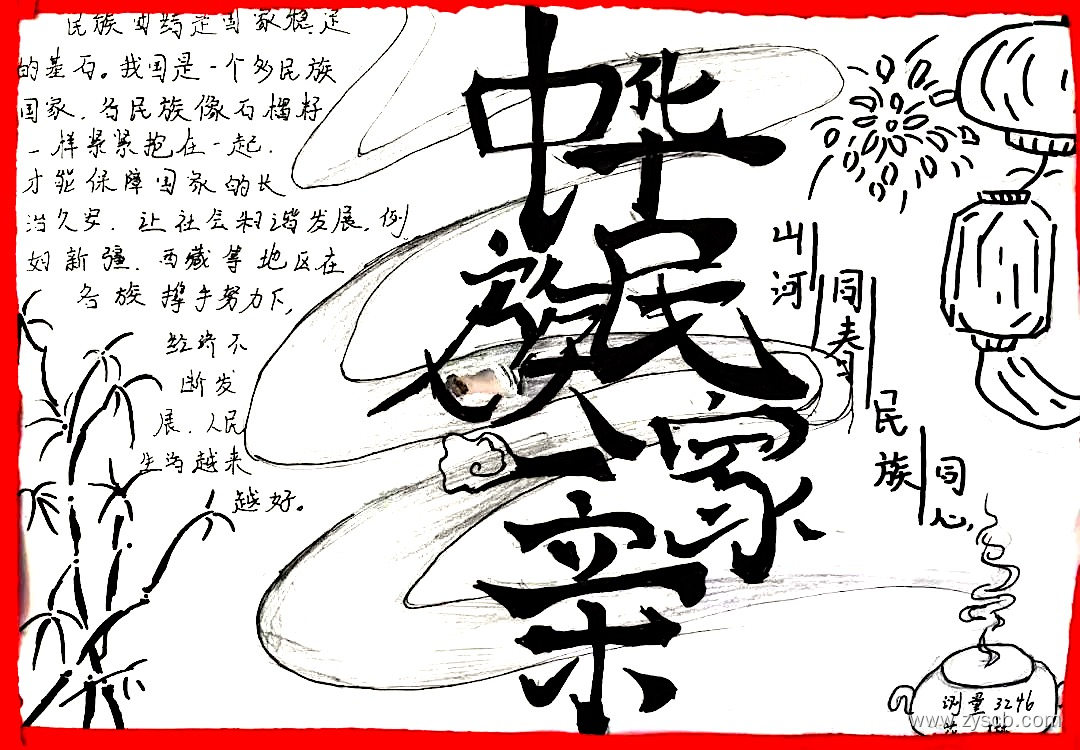 民族团结是国家稳定
的基石。我国是一个多民族
国家，各民族像石榴籽
一样紧紧抱在一起，
才能保障国家的长
治久安，让社会和谐发展，例
如新疆、西藏等地区在
各族携手努力下，
经济不
断发
展，人民
生活越来
越好。
中华
民族
一家亲
山河
同春
民族
同心
测量3246
www.zyscb.com